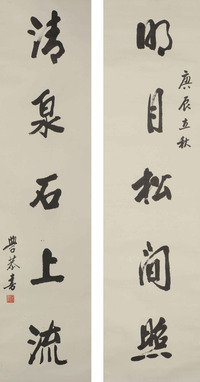 明月松间照
庚辰立秋
清泉石上流